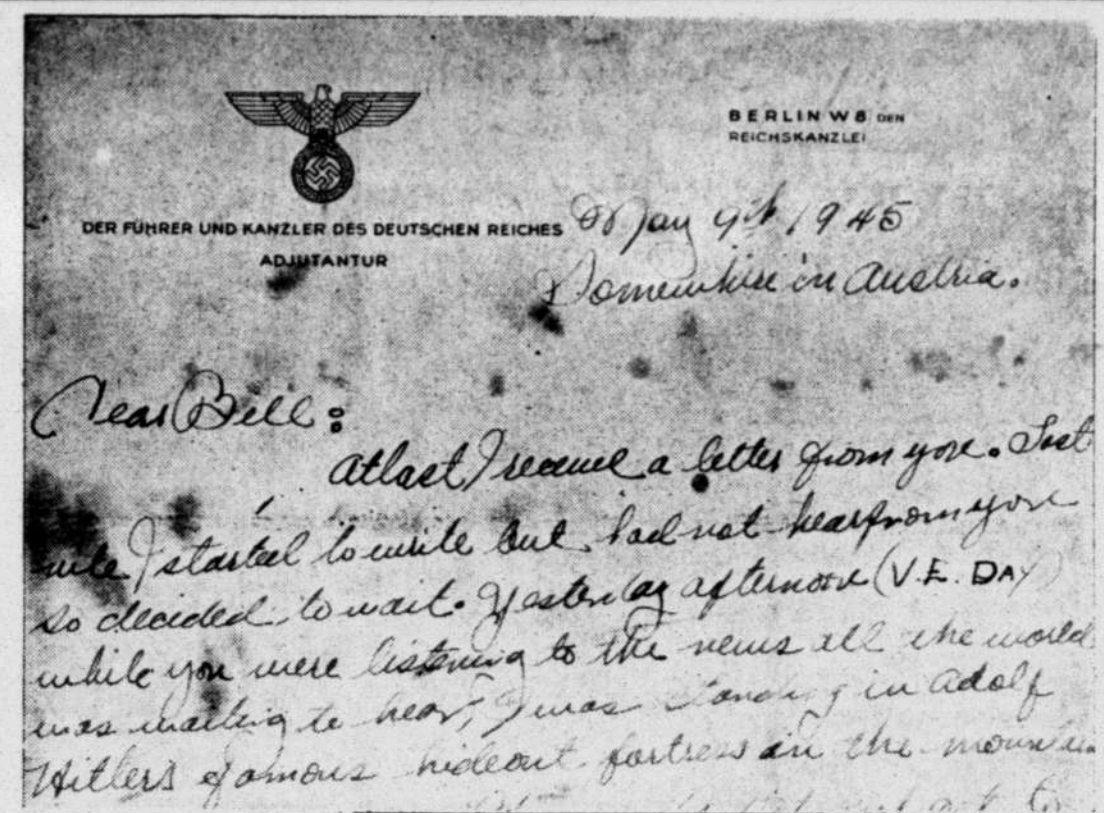 BERLIN W 8 DEN
REICHSKANZLEI
DER FÜHRER UND KANZLER DES DEUTSCHEN REICHES
ADJUTANTUR
May 9th 1945
Somewhere in Austria.
Dear Bill:
At last I receive a letter from you. Last
nite I started to write but had not hear from you
so decided to wait. Yesterday afternoon (V.E. DAY)
while you were listening to the news all the world
was waiting to hear, I was standing in Adolf
Hitlers famous hideout fortress in the